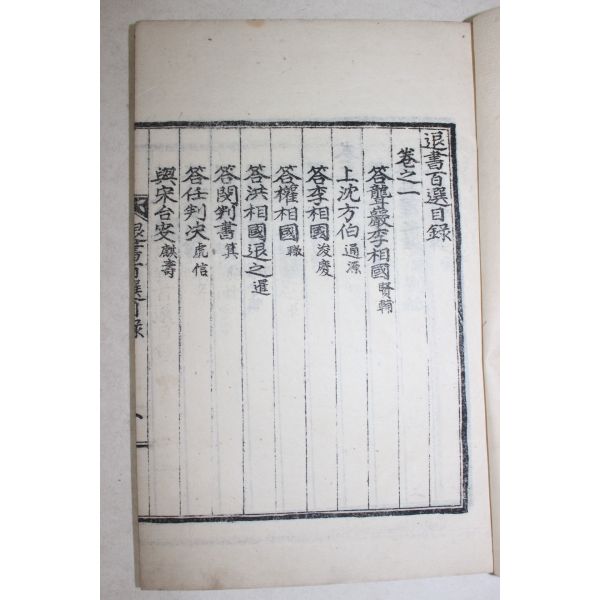 退書百選目錄
卷之一
答聾巖李相國賢輔
上沈方伯通源
答李相國浚慶
答權相國轍
答洪相國退之暹
答閔判書箕
答任判決虎臣
與宋台叟麒壽
退書百選目錄